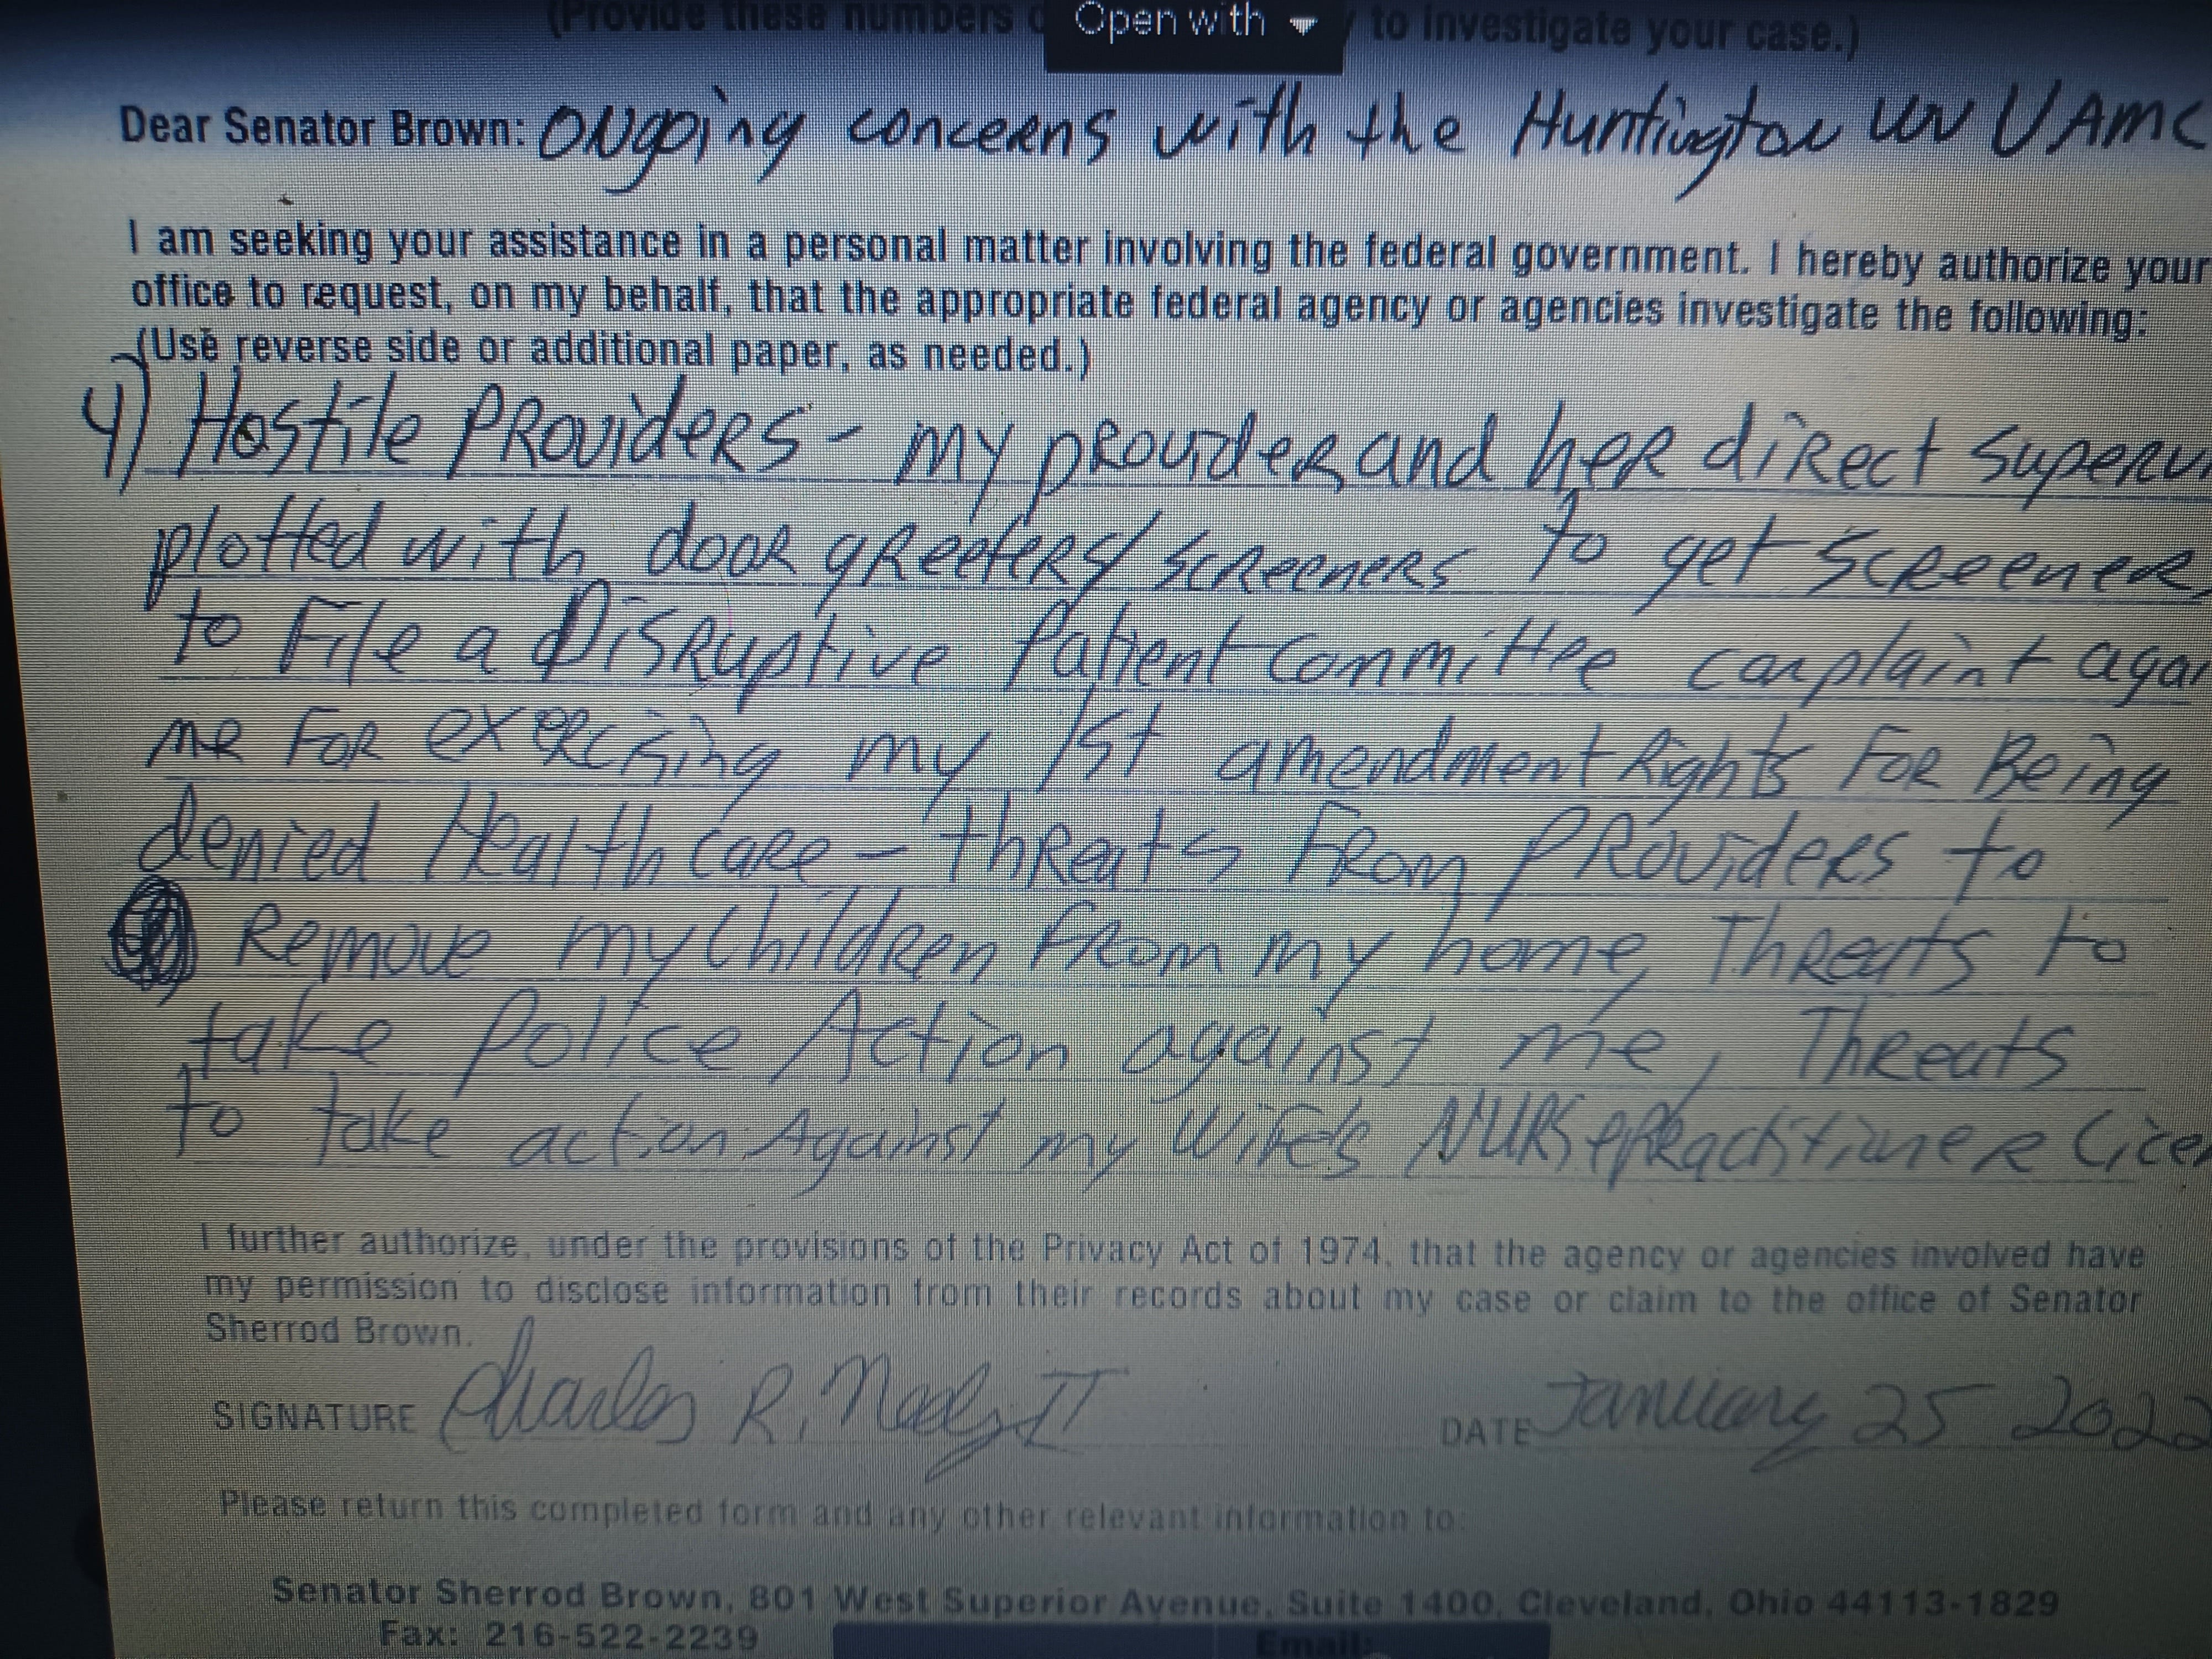 (Provide these numbers
Open with
to investigate your case.)
Dear Senator Brown: Ongoing concerns with the Huntington WV VAMC
I am seeking your assistance in a personal matter involving the federal government. I hereby authorize your
office to request, on my behalf, that the appropriate federal agency or agencies investigate the following:
(Use reverse side or additional paper, as needed.)
4) Hostile Providers - my provider and her direct Superv
plotted with door greeters/screeners to get screeners
to File a Disruptive Patient Committee complaint agai
me For exercising my 1st amendment Rights For Being
denied Health care - threats From Providers to
Remove my Children From my home, Threats to
take Police Action against me, Threats
to take action Against my Wife's Nurse Practitioner Licen
I further authorize, under the provisions of the Privacy Act of 1974, that the agency or agencies involved have
my permission to disclose information from their records about my case or claim to the office of Senator
Sherrod Brown.
SIGNATURE Charles R. II
DATE January 25 2022
Please return this completed form and any other relevant information to:
Senator Sherrod Brown, 801 West Superior Avenue, Suite 1400, Cleveland, Ohio 44113-1829
Fax: 216-522-2239
Email: